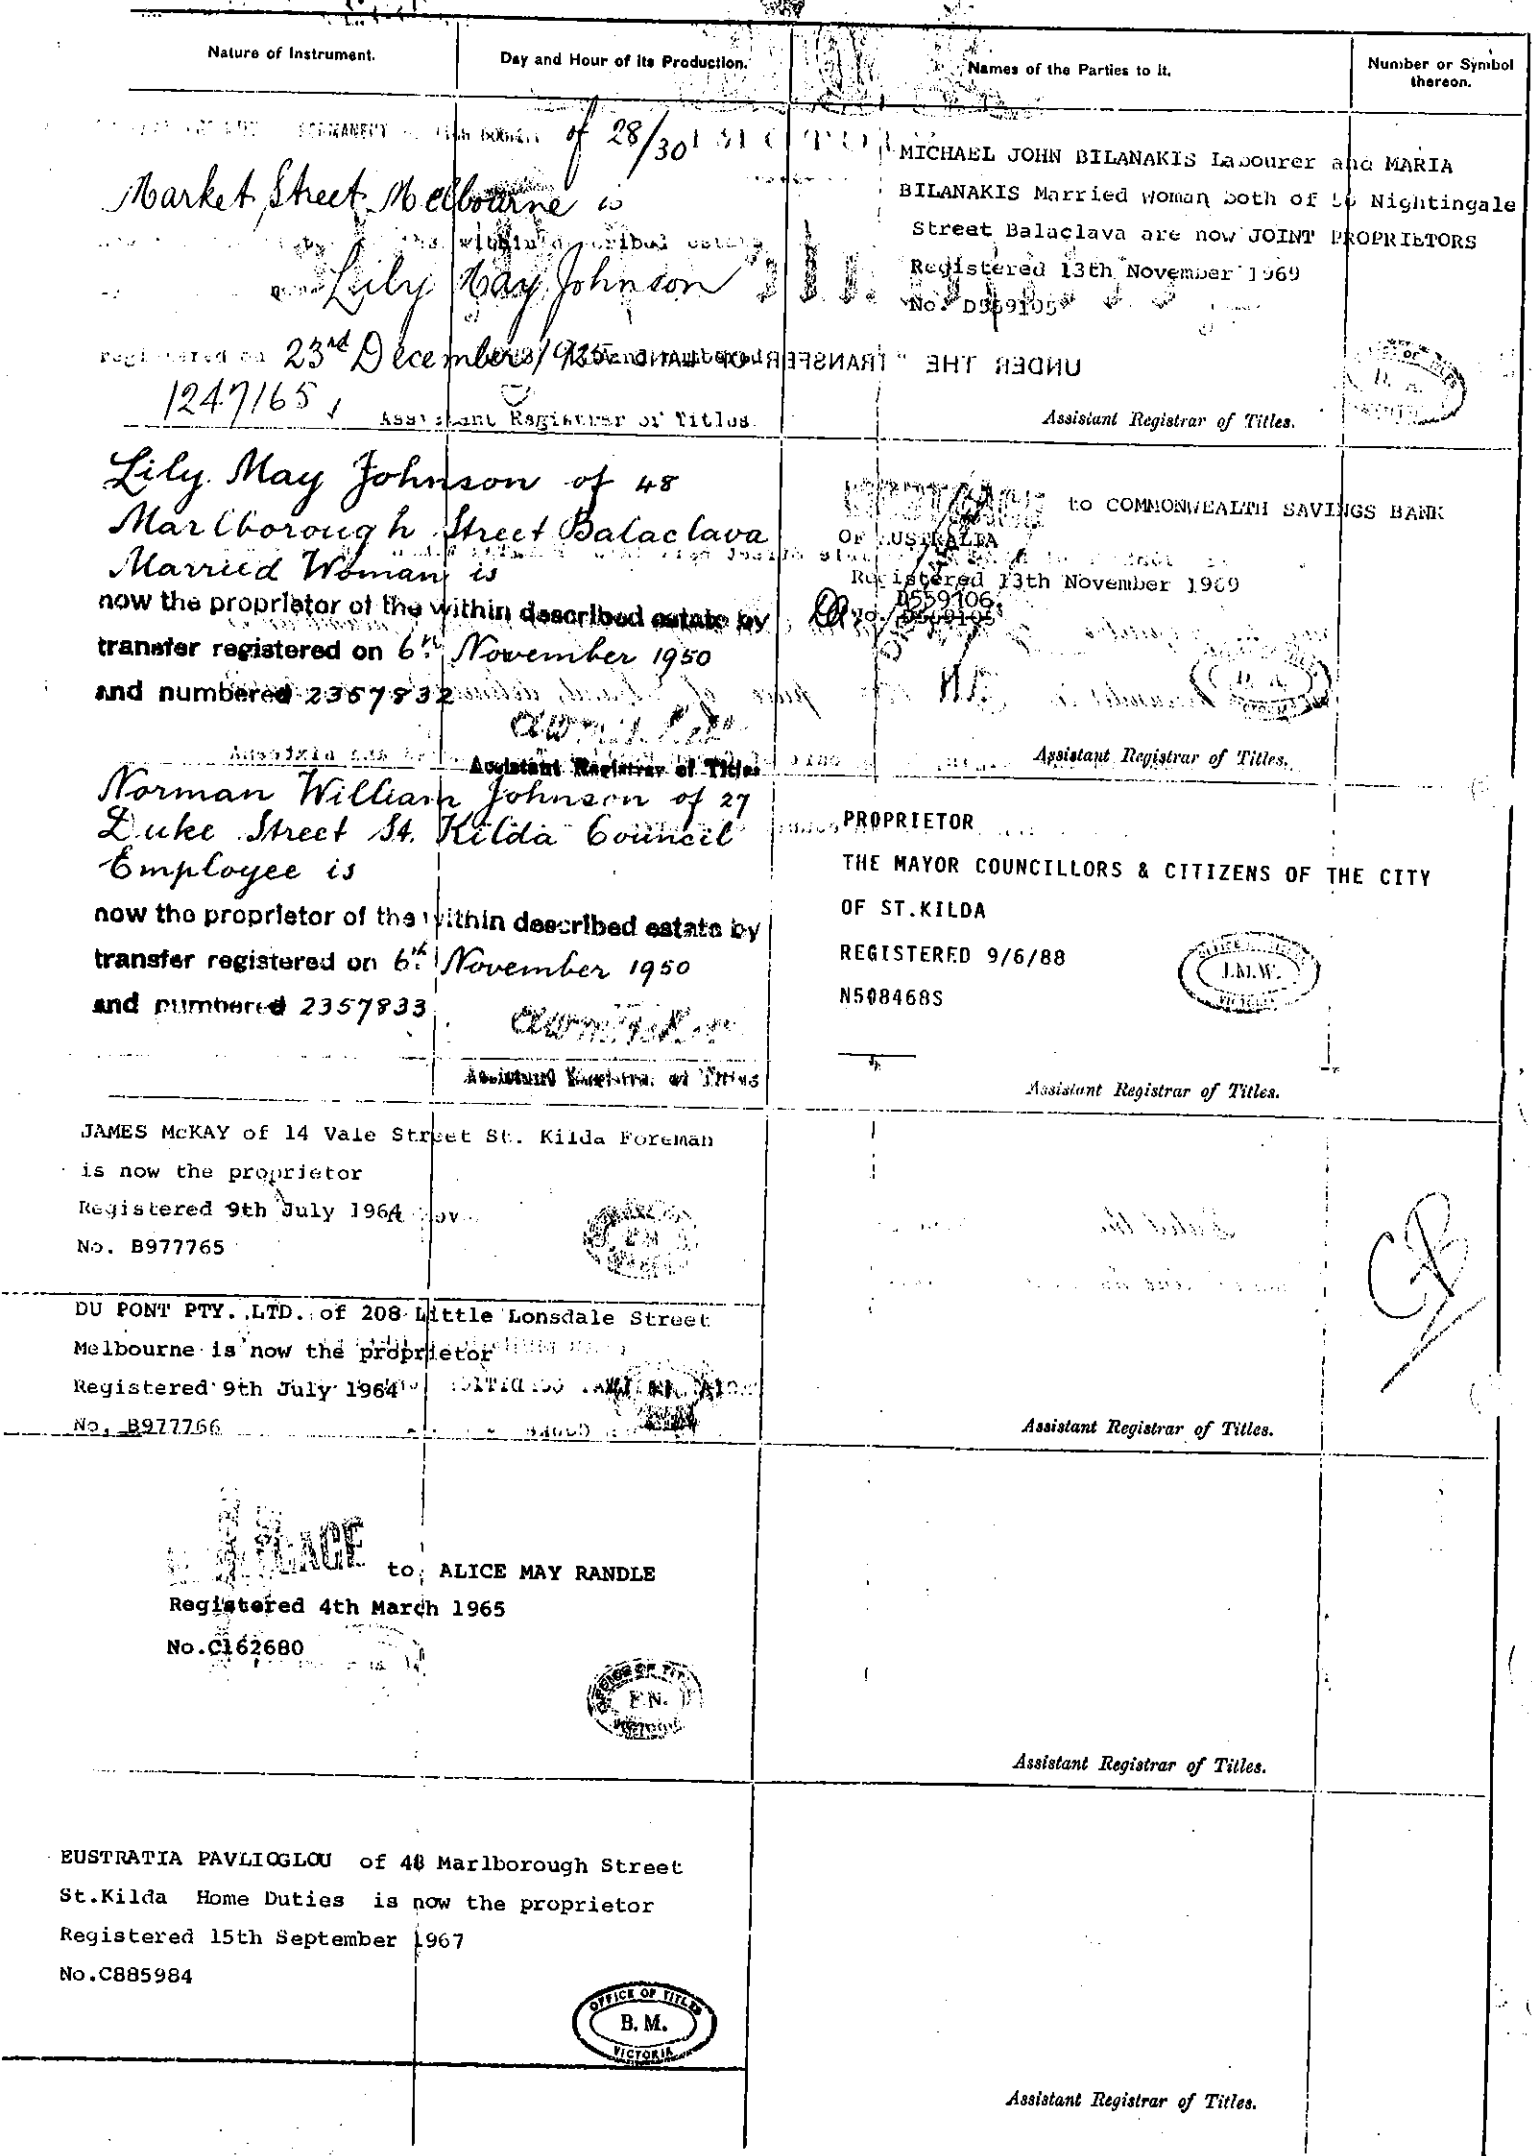 Nature of Instrument.
Day and Hour of its Production.
Names of the Parties to it.
Number or Symbol
thereon.
PERMANENT of 28/30
Market Street Melbourne is
within described estate
Lily May Johnson
registered on 23rd December 1925 and numbered
1247165
Assistant Registrar of Titles.
Lily May Johnson of 48
Marlborough Street Balaclava
Married Woman is
now the proprietor of the within described estate by
transfer registered on 6th November 1950
and numbered 2357832
Assistant Registrar of Titles
Norman William Johnson of 27
Duke Street St. Kilda Council
Employee is
now the proprietor of the within described estate by
transfer registered on 6th November 1950
and numbered 2357833
Assistant Registrar of Titles
JAMES McKAY of 14 Vale Street St. Kilda Foreman
is now the proprietor
Registered 9th July 1964
No. B977765
DU PONT PTY. LTD. of 208 Little Lonsdale Street
Melbourne is now the proprietor
Registered 9th July 1964
No. B977766
to ALICE MAY RANDLE
Registered 4th March 1965
No.C162680
OFFICE OF TITLES
F.N.
VICTORIA
EUSTRATIA PAVLIOGLOU of 48 Marlborough Street
St.Kilda Home Duties is now the proprietor
Registered 15th September 1967
No.C885984
OFFICE OF TITLES
B. M.
VICTORIA
MICHAEL JOHN BILANAKIS Labourer and MARIA
BILANAKIS Married woman both of Nightingale
Street Balaclava are now JOINT PROPRIETORS
Registered 13th November 1969
No. D559105
UNDER THE "TRANSFER OF LAND
D. A.
Assistant Registrar of Titles.
MORTGAGE to COMMONWEALTH SAVINGS BANK
OF AUSTRALIA
Registered 13th November 1969
D559106
No. D559105
D. A.
Assistant Registrar of Titles.
PROPRIETOR
THE MAYOR COUNCILLORS & CITIZENS OF THE CITY
OF ST.KILDA
REGISTERED 9/6/88
N508468S
J.M.W.
VICTORIA
Assistant Registrar of Titles.
CB
Assistant Registrar of Titles.
Assistant Registrar of Titles.
Assistant Registrar of Titles.